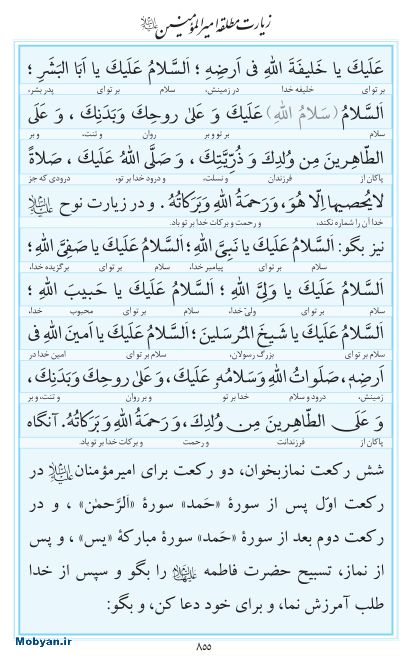 زیارت مطلقۀ امیرالمؤمنین علیه‌السلام
عَلَيْكَ يا خَليفَةَ اللهِ فى اَرضِهِ ؛ اَلسَّلامُ عَلَيكَ يا اَبَا البَشَرِ ؛
بر تو ای خلیفه خدا در زمینش، سلام بر تو ای پدر بشر،
اَلسَّلامُ (سَلامُ اللهِ) عَلَيكَ وَ عَلىٰ روحِكَ وَبَدَنِكَ ، وَ عَلَى
سلام بر تو و بر روان و تنت، و بر
الطّاهِرينَ مِن وُلدِكَ وَ ذُرِّيَّتِكَ ، وَ صَلَّى اللهُ عَلَيكَ ، صَلاةً
پاکان از فرزندان و نسلت، و درود خدا بر تو، درودی که جز
لايُحصيها اِلّا هُوَ، وَرَحمَةُ اللهِ وَبَرَكاتُهُ . و در زیارت نوح علیه‌السلام
خدا آن را شماره نکند، و رحمت و برکات خدا بر تو باد.
نیز بگو: اَلسَّلامُ عَلَيكَ يا نَبِىَّ اللهِ؛ اَلسَّلامُ عَلَيكَ يا صَفِىَّ اللهِ؛
سلام بر تو ای پیامبر خدا، سلام بر تو ای برگزیده خدا،
اَلسَّلامُ عَلَيكَ يا وَلِىَّ اللهِ ؛ اَلسَّلامُ عَلَيكَ يا حَبيبَ اللهِ ؛
سلام بر تو ای ولیّ خدا، سلام بر تو ای محبوب خدا،
اَلسَّلامُ عَلَيكَ يا شَيخَ المُرسَلينَ؛ اَلسَّلامُ عَلَيكَ يا اَمينَ اللهِ فى
سلام بر تو ای بزرگ رسولان، سلام بر تو ای امین خدا در
اَرضِهِ، صَلَواتُ اللهِ وَسَلامُهُ عَلَيكَ، وَ عَلىٰ روحِكَ وَبَدَنِكَ،
زمینش، درود و سلام خدا بر تو و بر روان و تنت، و بر
وَ عَلَى الطّاهِرينَ مِن وُلدِكَ، وَ رَحمَةُ اللهِ وَ بَرَكاتُهُ. آنگاه
پاکان از فرزندانت و رحمت و برکات خدا بر تو باد.
شش رکعت نماز بخوان، دو رکعت برای امیرمؤمنان علیه‌السلام در
رکعت اوّل پس از سورهٔ «حَمد» سورهٔ «اَلرَّحمٰن» ، و در
رکعت دوم بعد از سورهٔ «حَمد» سورهٔ مبارکهٔ «یس» ، و پس
از نماز، تسبیح حضرت فاطمه علیهاالسلام را بگو و سپس از خدا
طلب آمرزش نما، و برای خود دعا کن، و بگو:
Mobyan.ir
٨٥٥